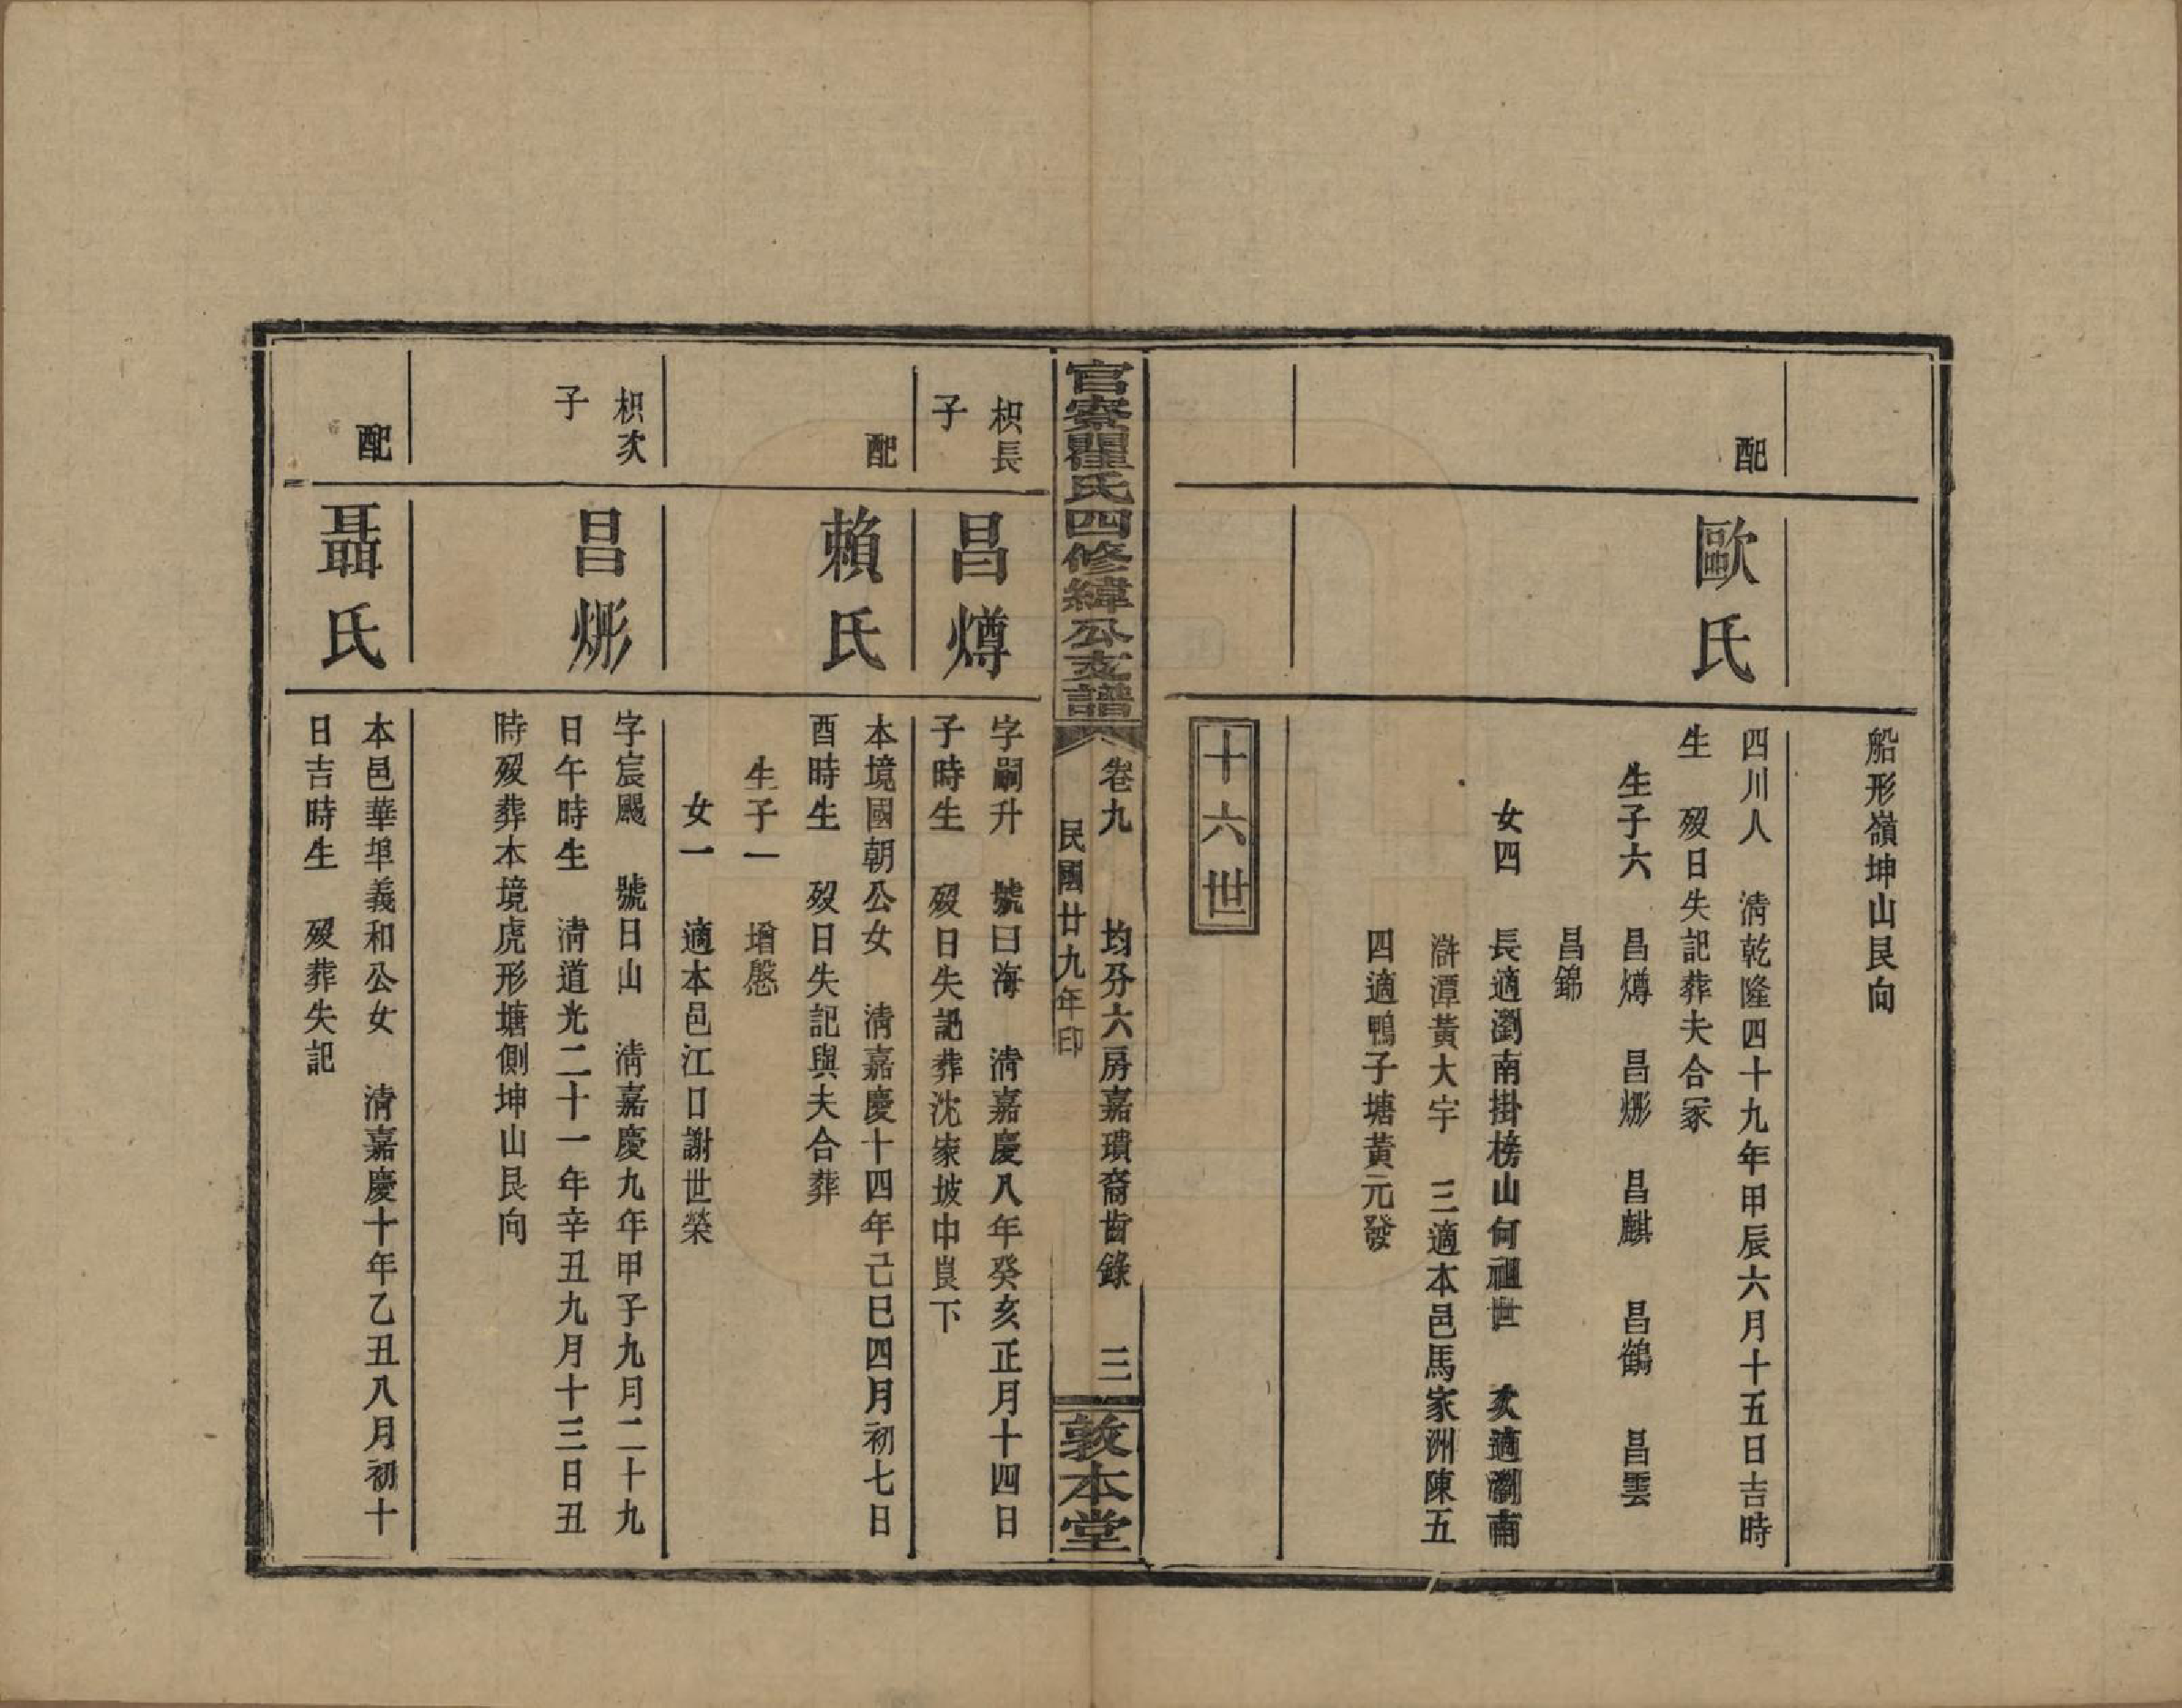 船形嶺坤山艮向
配
歐氏
四川人　清乾隆四十九年甲辰六月十五日吉時
生　歿日失記葬夫合冢
生子六　昌燇　昌烿　昌麒　昌鶴　昌雲
昌錦
女四　長適瀏南掛榜山何祖世　次適瀏南
滸潭黃大宇　三適本邑馬家洲陳五
四適鴨子塘黃元發
十六世
官寮瞿氏四修緯公支譜
卷九　均分六房嘉璝裔齒錄　三
民國廿九年印
敦本堂
枳長
子
昌燇
字嗣升　號曰海　清嘉慶八年癸亥正月十四日
子時生　歿日失記葬沈家坡中崀下
配
賴氏
本境國朝公女　清嘉慶十四年己巳四月初七日
酉時生　歿日失記與夫合葬
生子一　增慇
女一　適本邑江口謝世榮
枳次
子
昌烿
字宸颺　號日山　清嘉慶九年甲子九月二十九
日午時生　清道光二十一年辛丑九月十三日丑
時歿葬本境虎形塘側坤山艮向
配
聶氏
本邑華埠義和公女　清嘉慶十年乙丑八月初十
日吉時生　歿葬失記